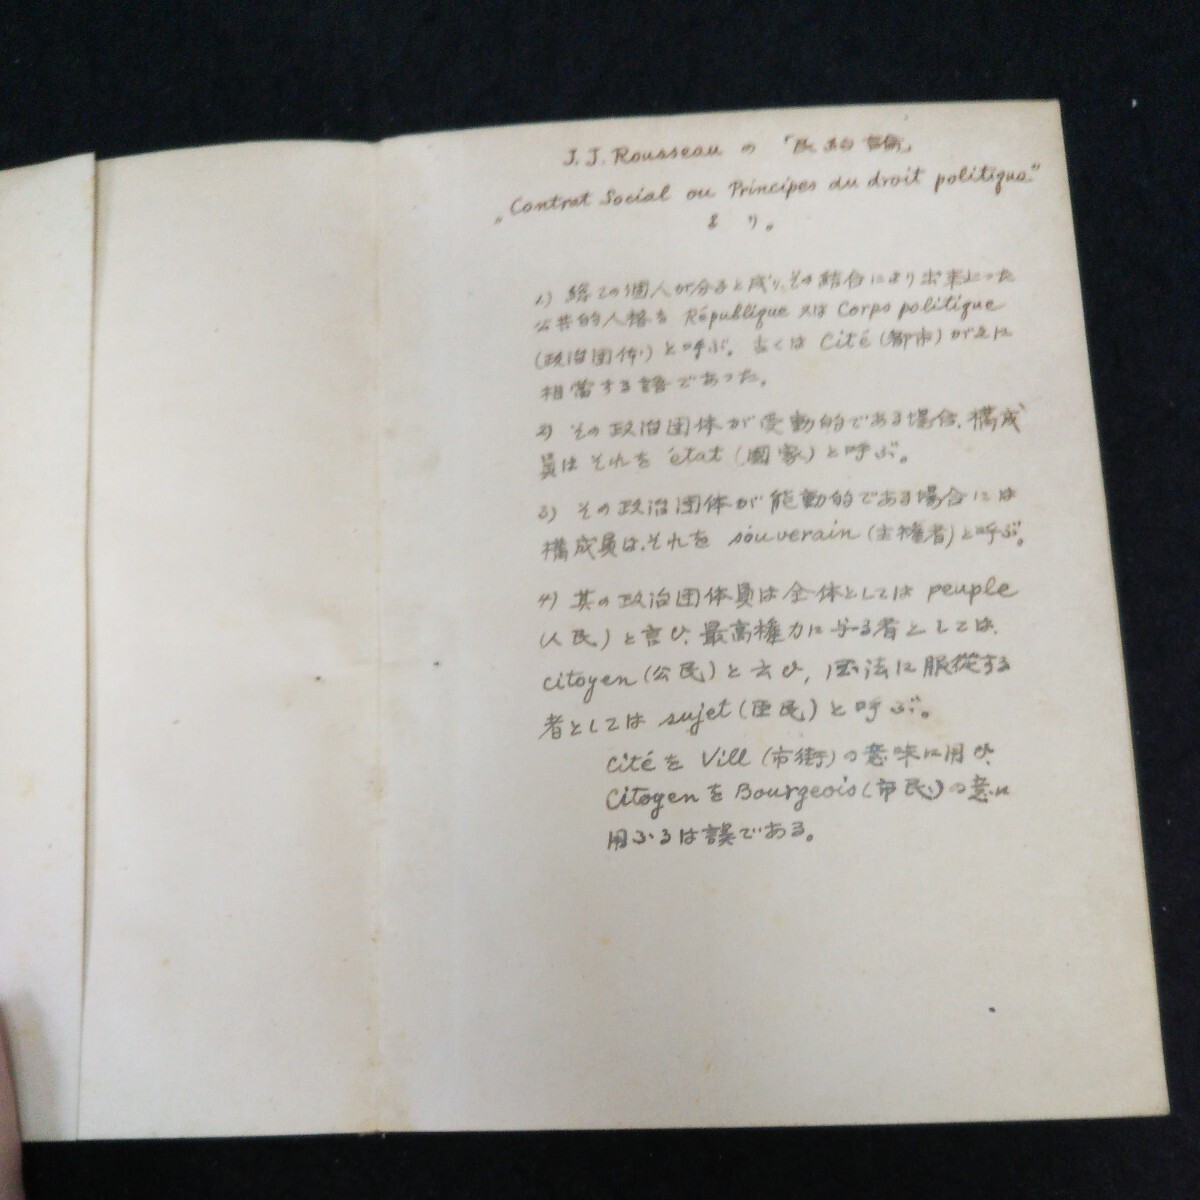 J. J. Rousseau の「民約論」
„Contrat Social ou Principes du droit politique"
より。
1) 総ての個人が分子と成り、その結合により出来上った
公共的人格を République 又は Corps politique
(政治団体)と呼ぶ。古くは Cité (都市)が之に
相當する語であった。
2) その政治団体が受動的である場合、構成
員はそれを état (國家)と呼ぶ。
3) その政治団体が能動的である場合には
構成員は、それを souverain (主権者)と呼ぶ。
4) 其の政治団体員は全体としては peuple
(人民)と言ひ、最高権力に与る者としては、
citoyen (公民)と云ひ, 国法に服従する
者としては sujet (臣民)と呼ぶ。
Cité を Vill (市街)の意味に用ひ、
Citoyen を Bourgeois (市民)の意に
用ふるは誤である。